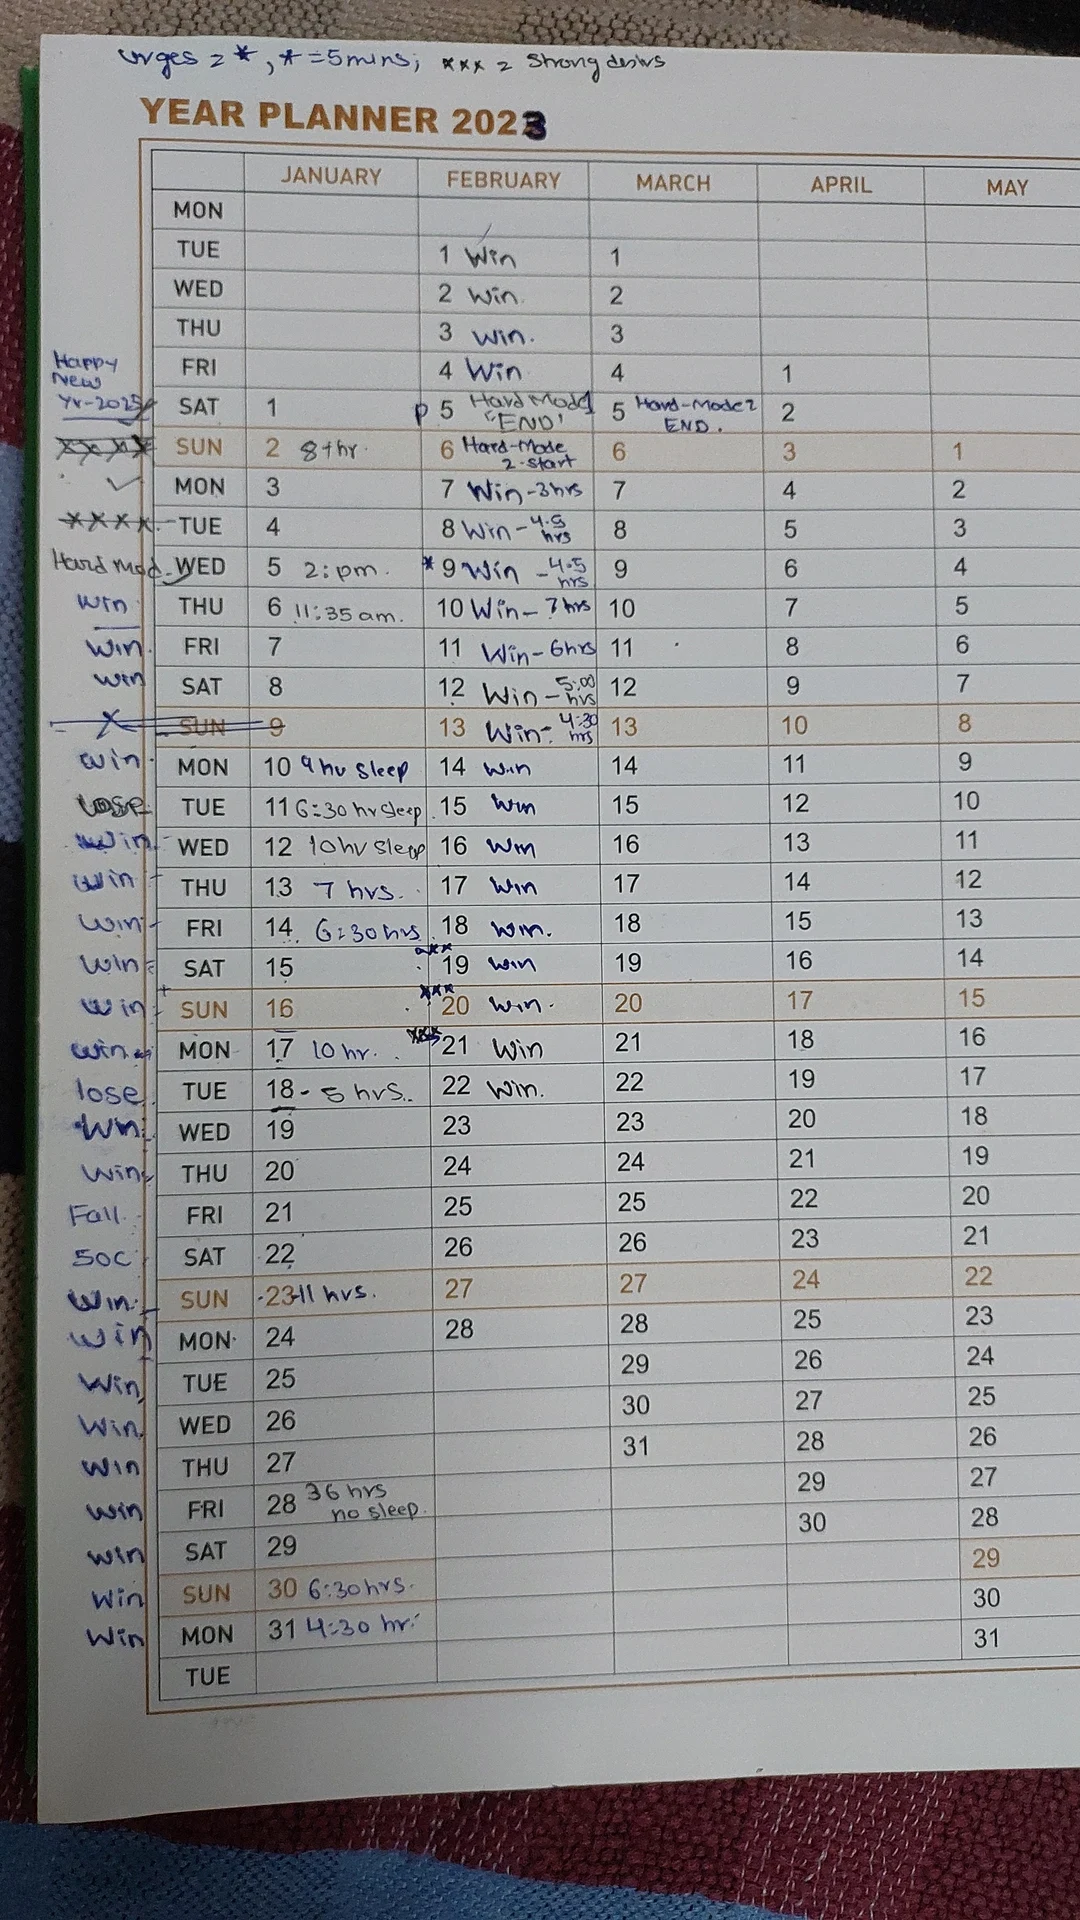 urges = *, * = 5mins; *** = Strong
YEAR PLANNER 2023
JANUARY FEBRUARY MARCH APRIL MAY
MON
TUE 1 Win 1
WED 2 Win. 2
THU 3 Win. 3
Happy New FRI 4 Win 4 1
SAT 1 P 5 Hard Mode "END" 5 Hard-Mode 2 END. 2
**** SUN 2 8+hr. 6 Hard-Mode 2-Start 6 3 1
✓ MON 3 7 Win-3hrs 7 4 2
**** TUE 4 8 Win-4.5 hrs 8 5 3
Hard mod WED 5 2:pm. *9 Win -4.5 hrs 9 6 4
Win THU 6 11:35am. 10 Win-7hrs 10 7 5
Win. FRI 7 11 Win-6hrs 11 8 6
Win SAT 8 12 Win-5:00 hrs 12 9 7
X SUN 9 13 Win-4:30 hrs 13 10 8
Win MON 10 9 hr Sleep 14 Win 14 11 9
Lose TUE 11 6:30 hr sleep 15 Win 15 12 10
Win WED 12 10hr Sleep 16 Win 16 13 11
Win THU 13 7 hrs. 17 Win 17 14 12
Win FRI 14 6:30hrs 18 Win. 18 15 13
Win SAT 15 *** 19 Win 19 16 14
Win SUN 16 *** 20 Win. 20 17 15
Win MON 17 10hr. *** 21 Win 21 18 16
lose TUE 18 - 5 hrs.. 22 Win. 22 19 17
Win WED 19 23 23 20 18
Win THU 20 24 24 21 19
Fall FRI 21 25 25 22 20
SAT 22 26 26 23 21
Win SUN 23-11 hrs. 27 27 24 22
Win MON 24 28 28 25 23
Win TUE 25 29 26 24
Win WED 26 30 27 25
Win THU 27 31 28 26
Win FRI 28 36 hrs no sleep. 29 27
Win SAT 29 30 28
29
Win SUN 30 6:30hrs. 30
Win MON 31 4:30 hr. 31
TUE